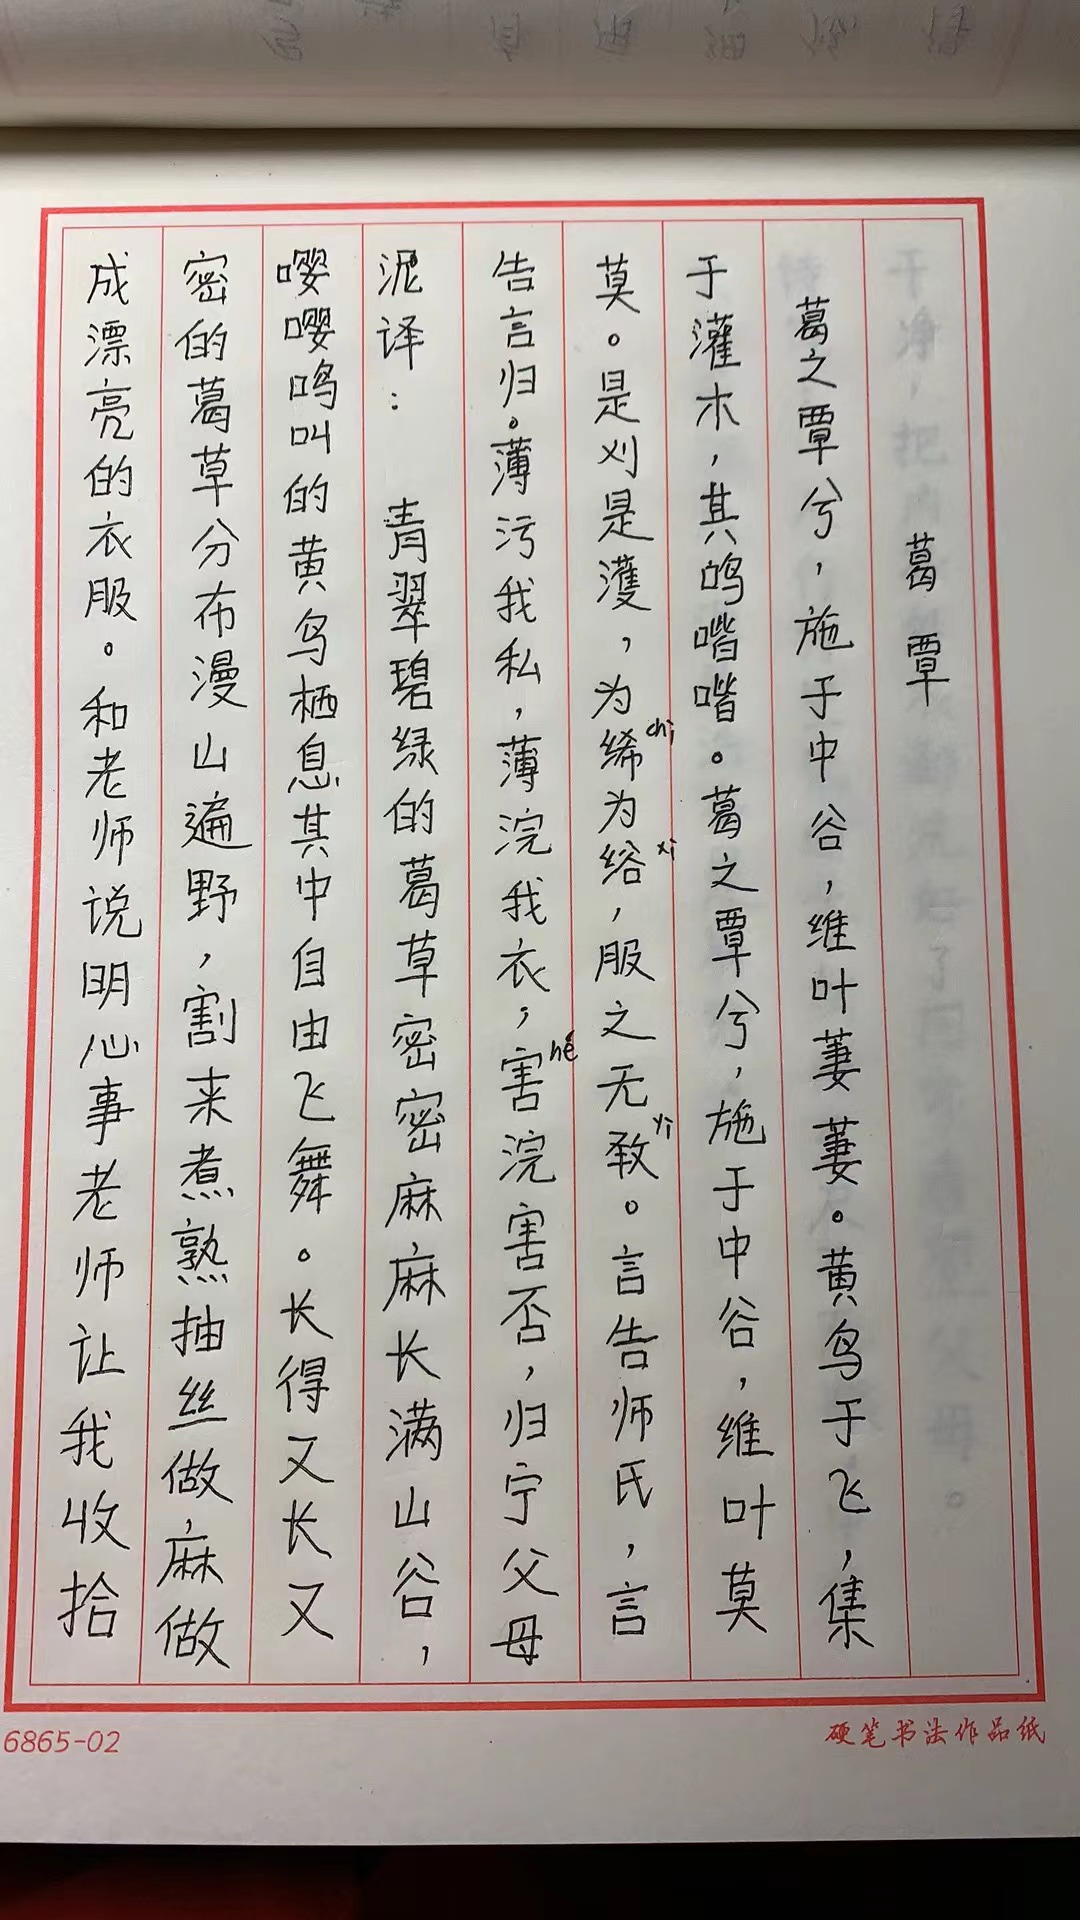 葛覃
葛之覃兮，施于中谷，维叶萋萋。黄鸟于飞，集
于灌木，其鸣喈喈。葛之覃兮，施于中谷，维叶莫
莫。是刈是濩，为絺chī为绤xì，服之无斁yì。言告师氏，言
告言归。薄污我私，薄浣我衣，害hé浣害否，归宁父母
泥译： 青翠碧绿的葛草密密麻麻长满山谷，
嘤嘤鸣叫的黄鸟栖息其中自由飞舞。长得又长又
密的葛草分布漫山遍野，割来煮熟抽丝做麻做
成漂亮的衣服。和老师说明心事老师让我收拾
6865-02
硬笔书法作品纸